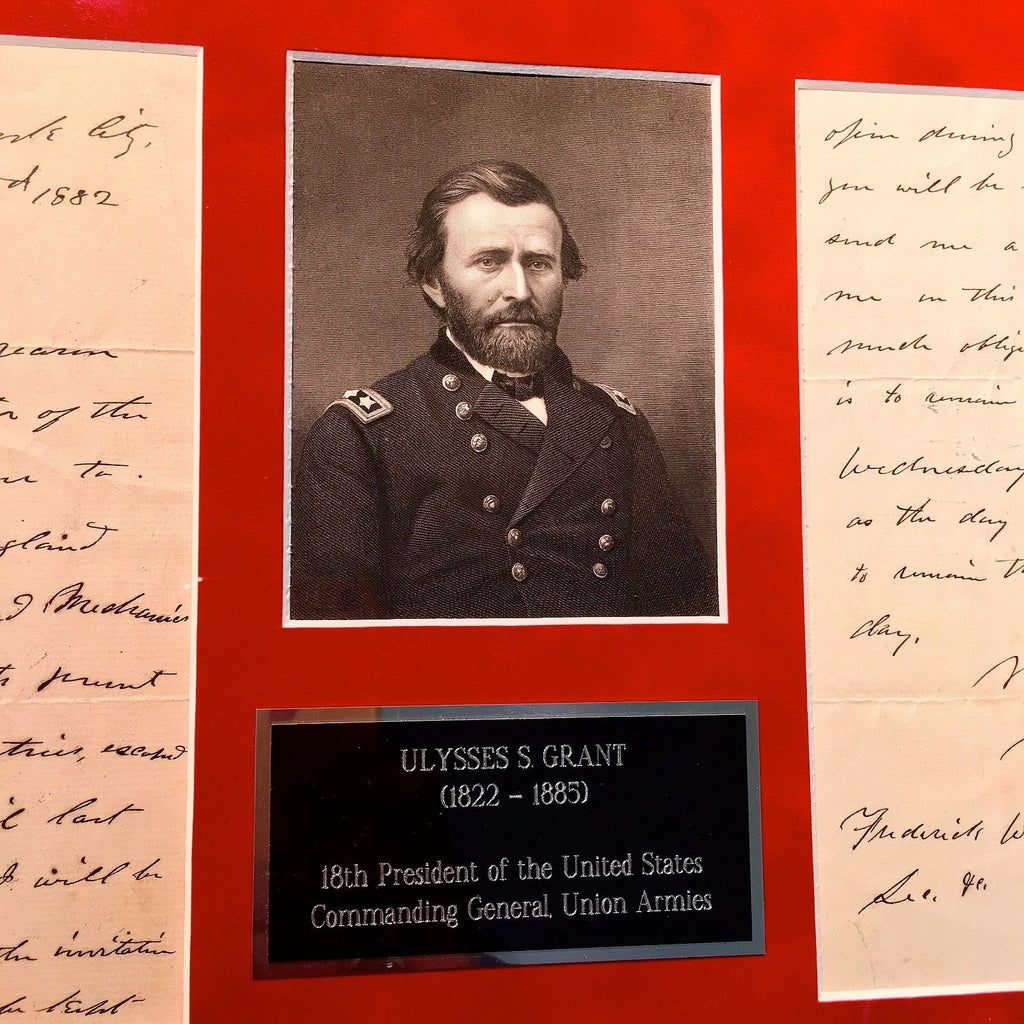 City,
1882
reason
of the
to
gland
Mechanics
present
tries, escaped
last
I will be
the invitation
be kept
ULYSSES S. GRANT
(1822 – 1885)
18th President of the United States
Commanding General, Union Armies
open during
you will be
send me a
me in this
much oblig
is to remain
Wednesday
as the day
to remain th
day.
Frederick W
Sec. &c.